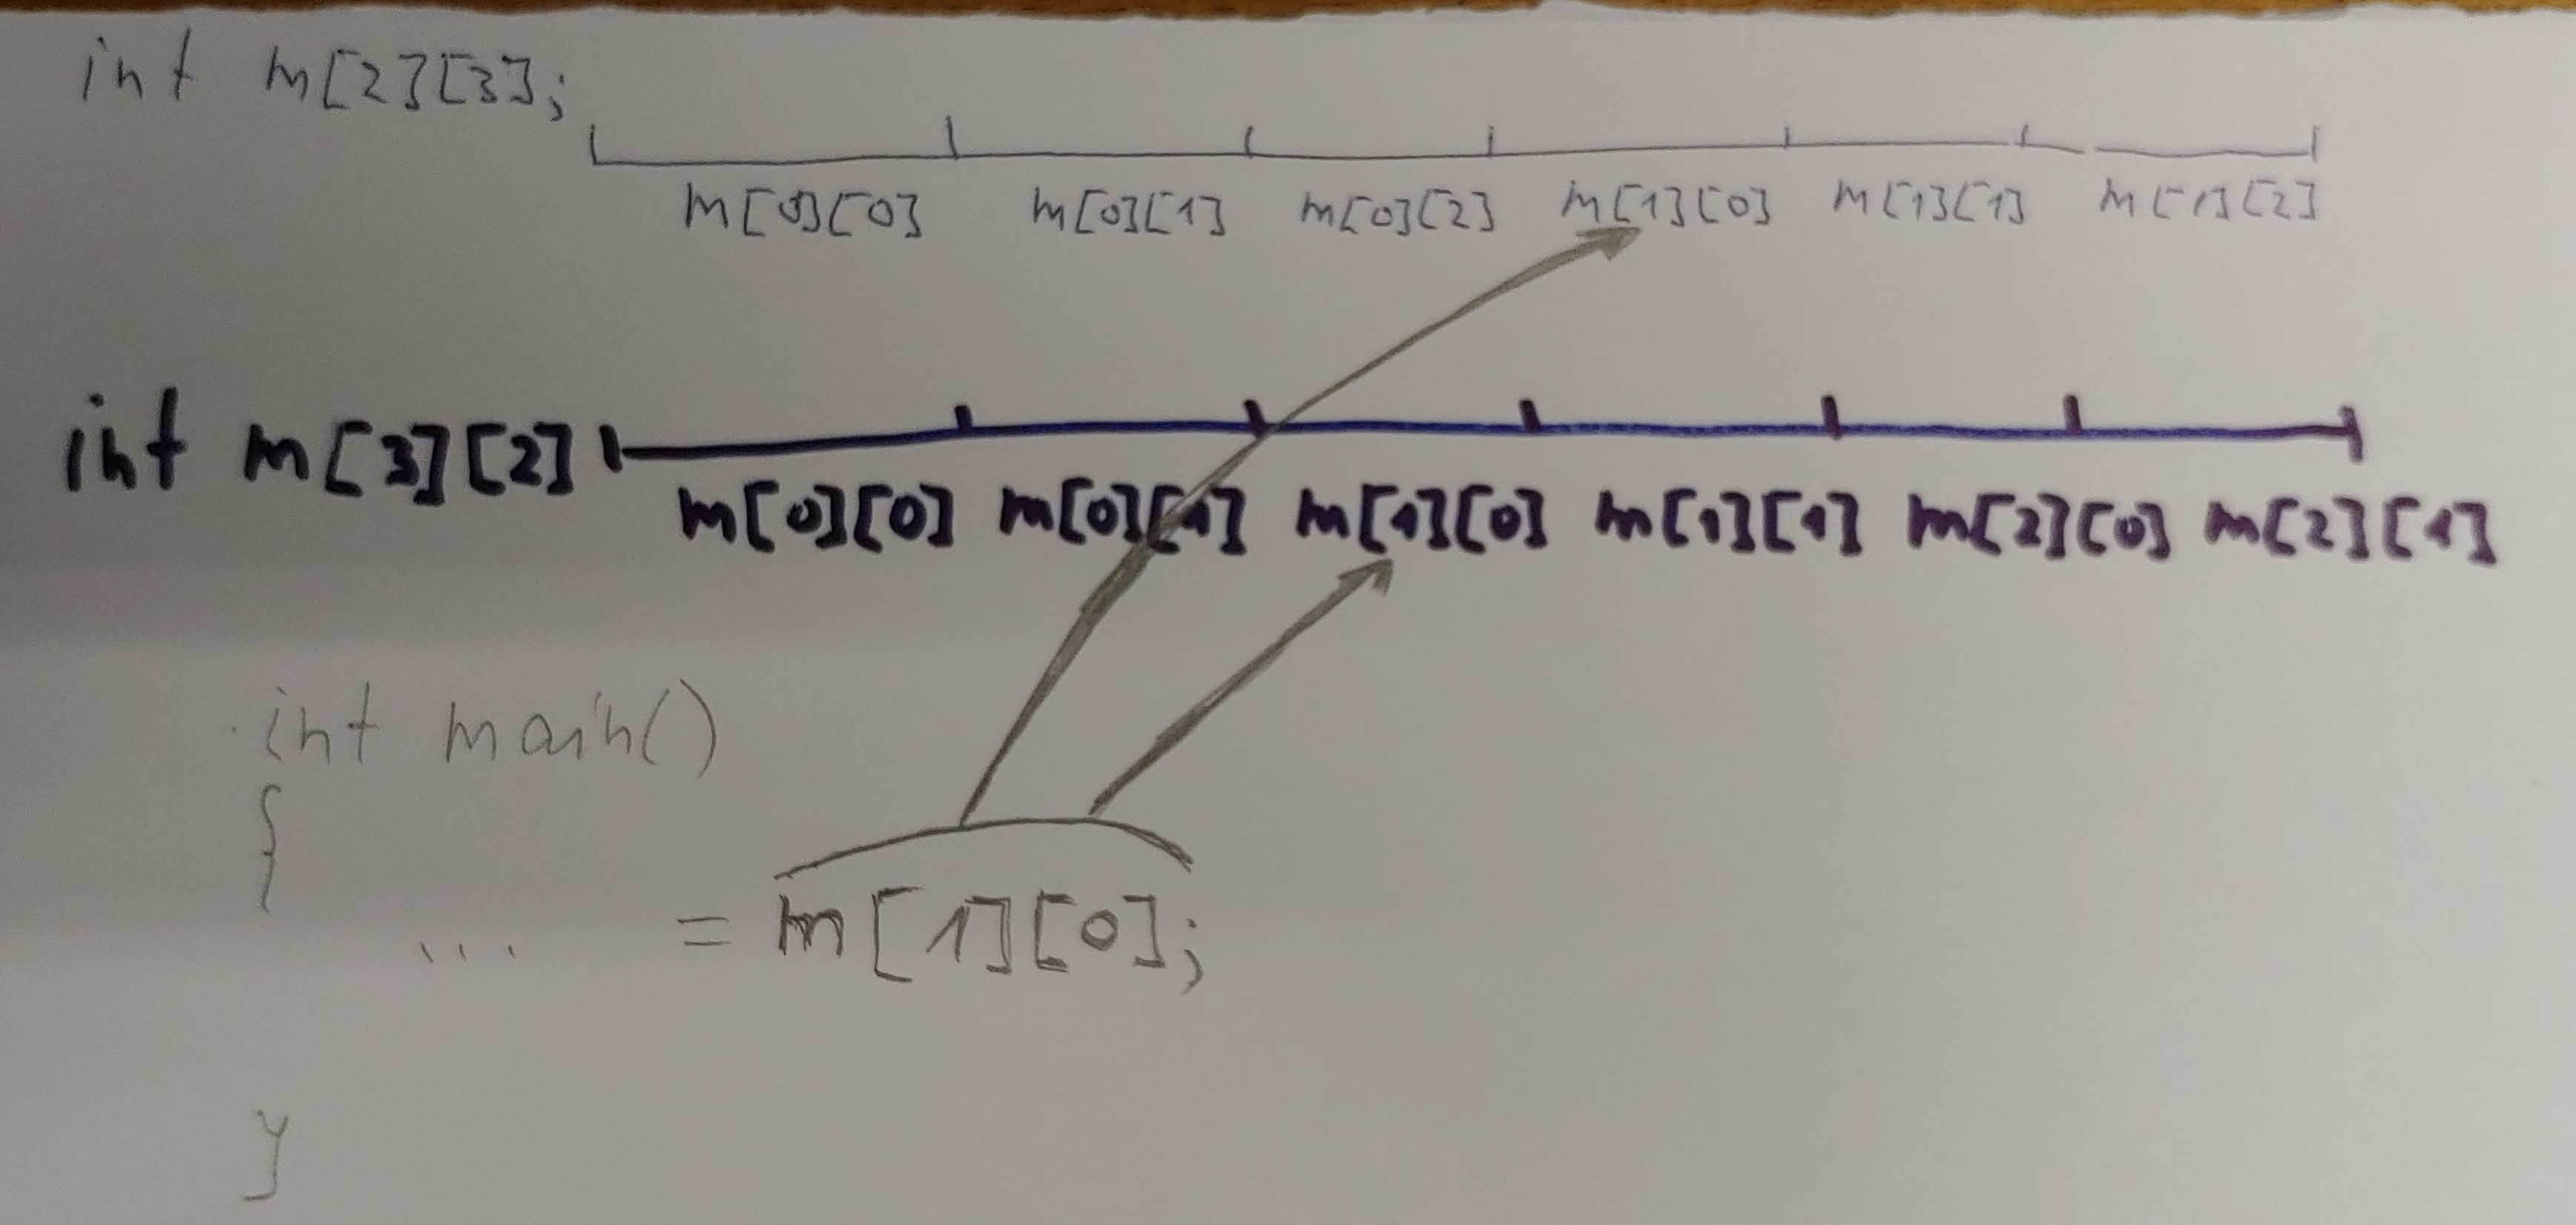 int m[2][3];
m[0][0] m[0][1] m[0][2] m[1][0] m[1][1] m[1][2]
int m[3][2]
m[0][0] m[0][1] m[1][0] m[1][1] m[2][0] m[2][1]
int main()
{
... = m[1][0];
}